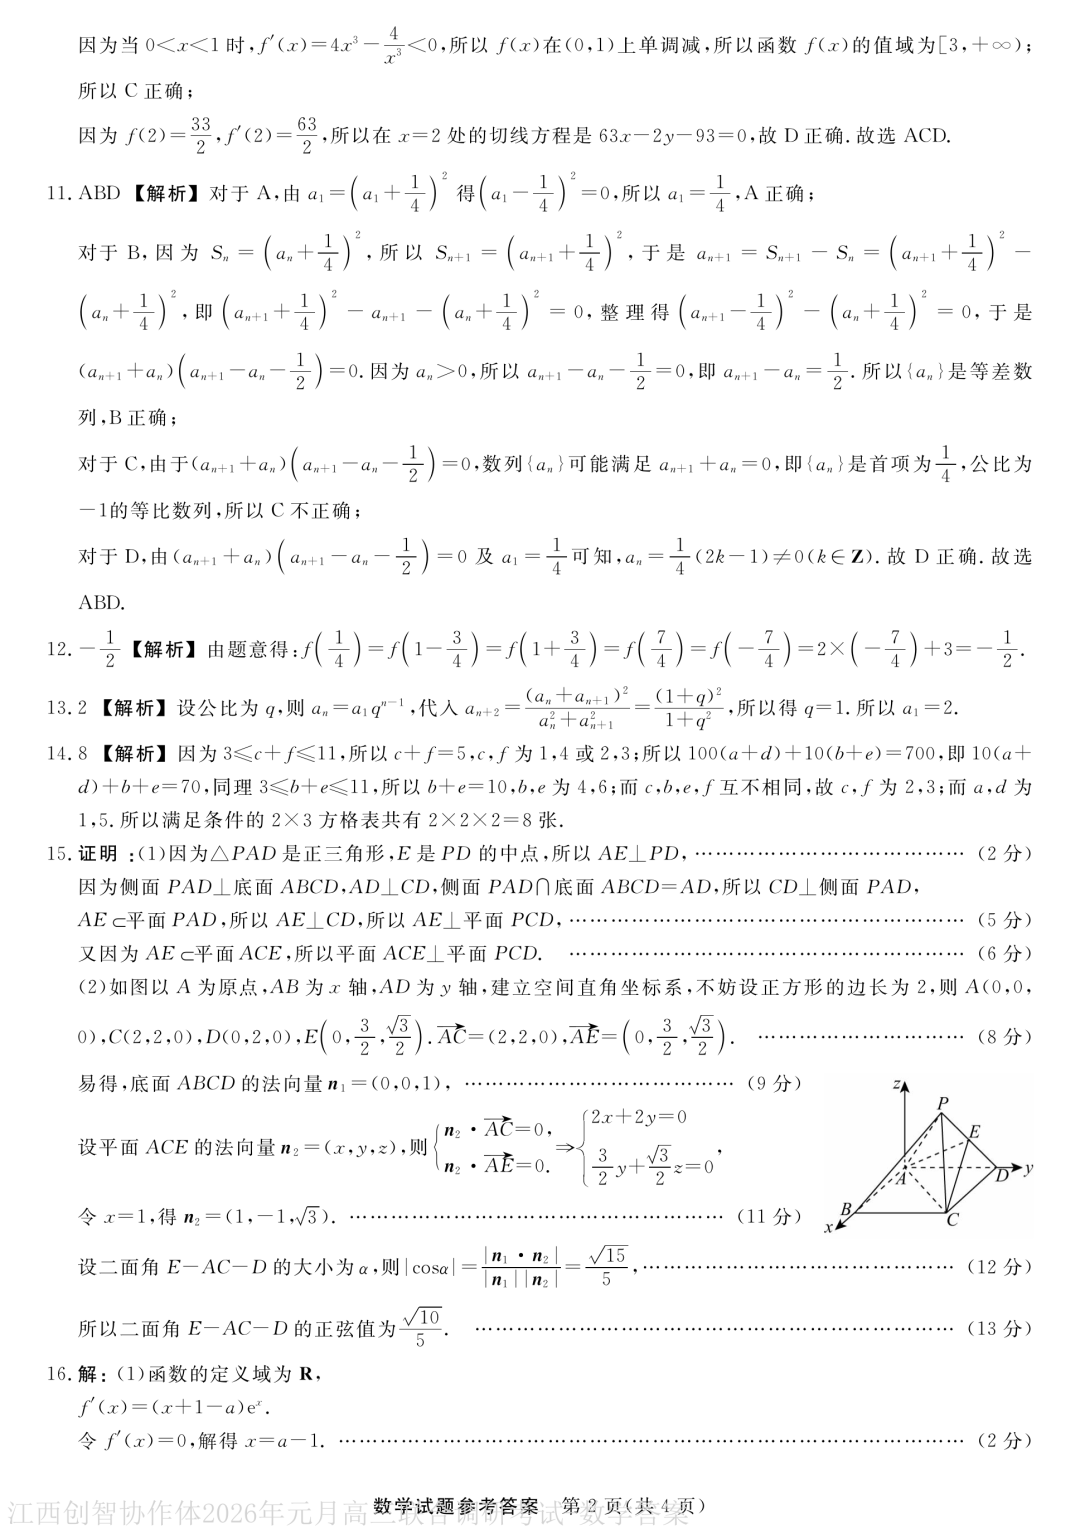 因为当 0<x<1 时,f′(x)=4x³−4/x³<0,所以 f(x)在(0,1)上单调减,所以函数 f(x)的值域为[3,+∞);
所以 C 正确;
因为 f(2)=33/2,f′(2)=63/2,所以在 x=2 处的切线方程是 63x−2y−93=0,故 D 正确.故选 ACD.
11. ABD 【解析】对于 A,由 a₁=(a₁+1/4)² 得(a₁−1/4)²=0,所以 a₁=1/4,A 正确;
对于 B,因为 Sₙ=(aₙ+1/4)²,所以 Sₙ₊₁=(aₙ₊₁+1/4)²,于是 aₙ₊₁=Sₙ₊₁−Sₙ=(aₙ₊₁+1/4)²−
(aₙ+1/4)²,即(aₙ₊₁+1/4)²−aₙ₊₁−(aₙ+1/4)²=0,整理得(aₙ₊₁−1/4)²−(aₙ+1/4)²=0,于是
(aₙ₊₁+aₙ)(aₙ₊₁−aₙ−1/2)=0.因为 aₙ>0,所以 aₙ₊₁−aₙ−1/2=0,即 aₙ₊₁−aₙ=1/2.所以{aₙ}是等差数
列,B 正确;
对于 C,由于(aₙ₊₁+aₙ)(aₙ₊₁−aₙ−1/2)=0,数列{aₙ}可能满足 aₙ₊₁+aₙ=0,即{aₙ}是首项为1/4,公比为
−1的等比数列,所以 C 不正确;
对于 D,由(aₙ₊₁+aₙ)(aₙ₊₁−aₙ−1/2)=0 及 a₁=1/4可知,aₙ=1/4(2k−1)≠0(k∈Z).故 D 正确.故选
ABD.
12. −1/2 【解析】由题意得:f(1/4)=f(1−3/4)=f(1+3/4)=f(7/4)=f(−7/4)=2×(−7/4)+3=−1/2.
13. 2 【解析】设公比为 q,则 aₙ=a₁qⁿ⁻¹,代入 aₙ₊₂=(aₙ+aₙ₊₁)²/(aₙ²+aₙ₊₁²)=(1+q)²/(1+q²),所以得 q=1.所以 a₁=2.
14. 8 【解析】因为 3≤c+f≤11,所以 c+f=5,c,f 为 1,4 或 2,3;所以 100(a+d)+10(b+e)=700,即 10(a+
d)+b+e=70,同理 3≤b+e≤11,所以 b+e=10,b,e 为 4,6;而 c,b,e,f 互不相同,故 c,f 为 2,3;而 a,d 为
1,5.所以满足条件的 2×3 方格表共有 2×2×2=8 张.
15. 证明:(1)因为△PAD 是正三角形,E 是 PD 的中点,所以 AE⊥PD, …………………………………… (2 分)
因为侧面 PAD⊥底面 ABCD,AD⊥CD,侧面 PAD∩底面 ABCD=AD,所以 CD⊥侧面 PAD,
AE⊂平面 PAD,所以 AE⊥CD,所以 AE⊥平面 PCD, …………………………………… (5 分)
又因为 AE⊂平面 ACE,所以平面 ACE⊥平面 PCD. …………………………………… (6 分)
(2)如图以 A 为原点,AB 为 x 轴,AD 为 y 轴,建立空间直角坐标系,不妨设正方形的边长为 2,则 A(0,0,
0),C(2,2,0),D(0,2,0),E(0,3/2,√3/2).AC→=(2,2,0),AE→=(0,3/2,√3/2). ………………………… (8 分)
易得,底面 ABCD 的法向量 n₁=(0,0,1), ………………………………… (9 分)
设平面 ACE 的法向量 n₂=(x,y,z),则{n₂·AC→=0, n₂·AE→=0.⇒{2x+2y=0 3/2y+√3/2z=0,
令 x=1,得 n₂=(1,−1,√3). …………………………………… (11 分)
z P E A D y B C x
设二面角 E−AC−D 的大小为 α,则|cosα|=|n₁·n₂|/|n₁||n₂|=√15/5, …………………………………… (12 分)
所以二面角 E−AC−D 的正弦值为√10/5. …………………………………… (13 分)
16. 解:(1)函数的定义域为 R,
f′(x)=(x+1−a)eˣ.
令 f′(x)=0,解得 x=a−1. …………………………………… (2 分)
数学试题参考答案 第 2 页(共 4 页)
江西创智协作体2026年元月高三联合调研考试 数学答案